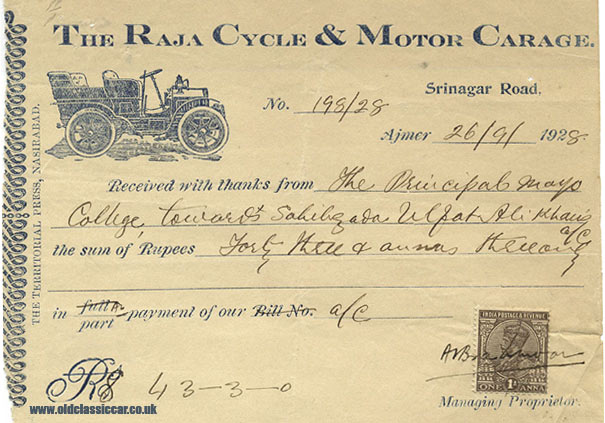 THE RAJA CYCLE & MOTOR CARAGE.
Srinagar Road.
No. 198/28
Ajmer 26/9/1928.
Received with thanks from The Principal Mayo
College, towards Sahibzada Ulfat Ali Khan's
a/c
the sum of Rupees Forty three & annas three only
in full part payment of our Bill No. a/c
INDIA POSTAGE & REVENUE
1A
ONE ANNA
Rs 43-3-0
Managing Proprietor.
THE TERRITORIAL PRESS, NASIRABAD.
www.oldclassiccar.co.uk